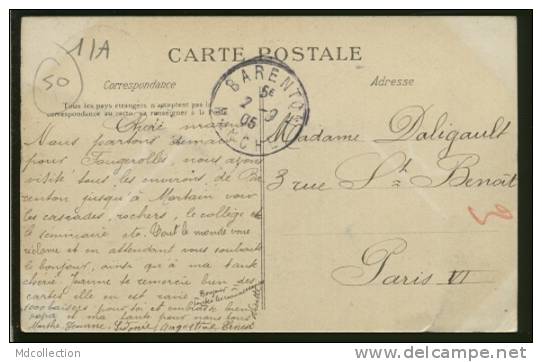 1/A
50
CARTE POSTALE
Correspondance
Adresse
Tous les pays étrangers n'acceptent pas la
correspondance au recto, se renseigner à la Poste
BARENTON
5E
2 -9
05
MANCHE
Chère
Nous partons demain
pour Fougerolles nous avons
visité tous les environs de Ba
renton jusqu'à Mortain voir
les cascades, rochers, le collège et
le seminaire etc. Tout le monde vous
réclame et en attendant vous souhaite
le bonjour, ainsi qu'à ma tante
cherie Jeanne te remercie bien des
cartes elle en est ravie
1000 baisers pour toi et embrasse bien
papa et ma tante pour nous tous
Marthe Jeanne Augustine Ernest
Bonjour à
Madame Daligault
3 rue St Benoît
Paris VI
Mdcollection
www.delcampe.net